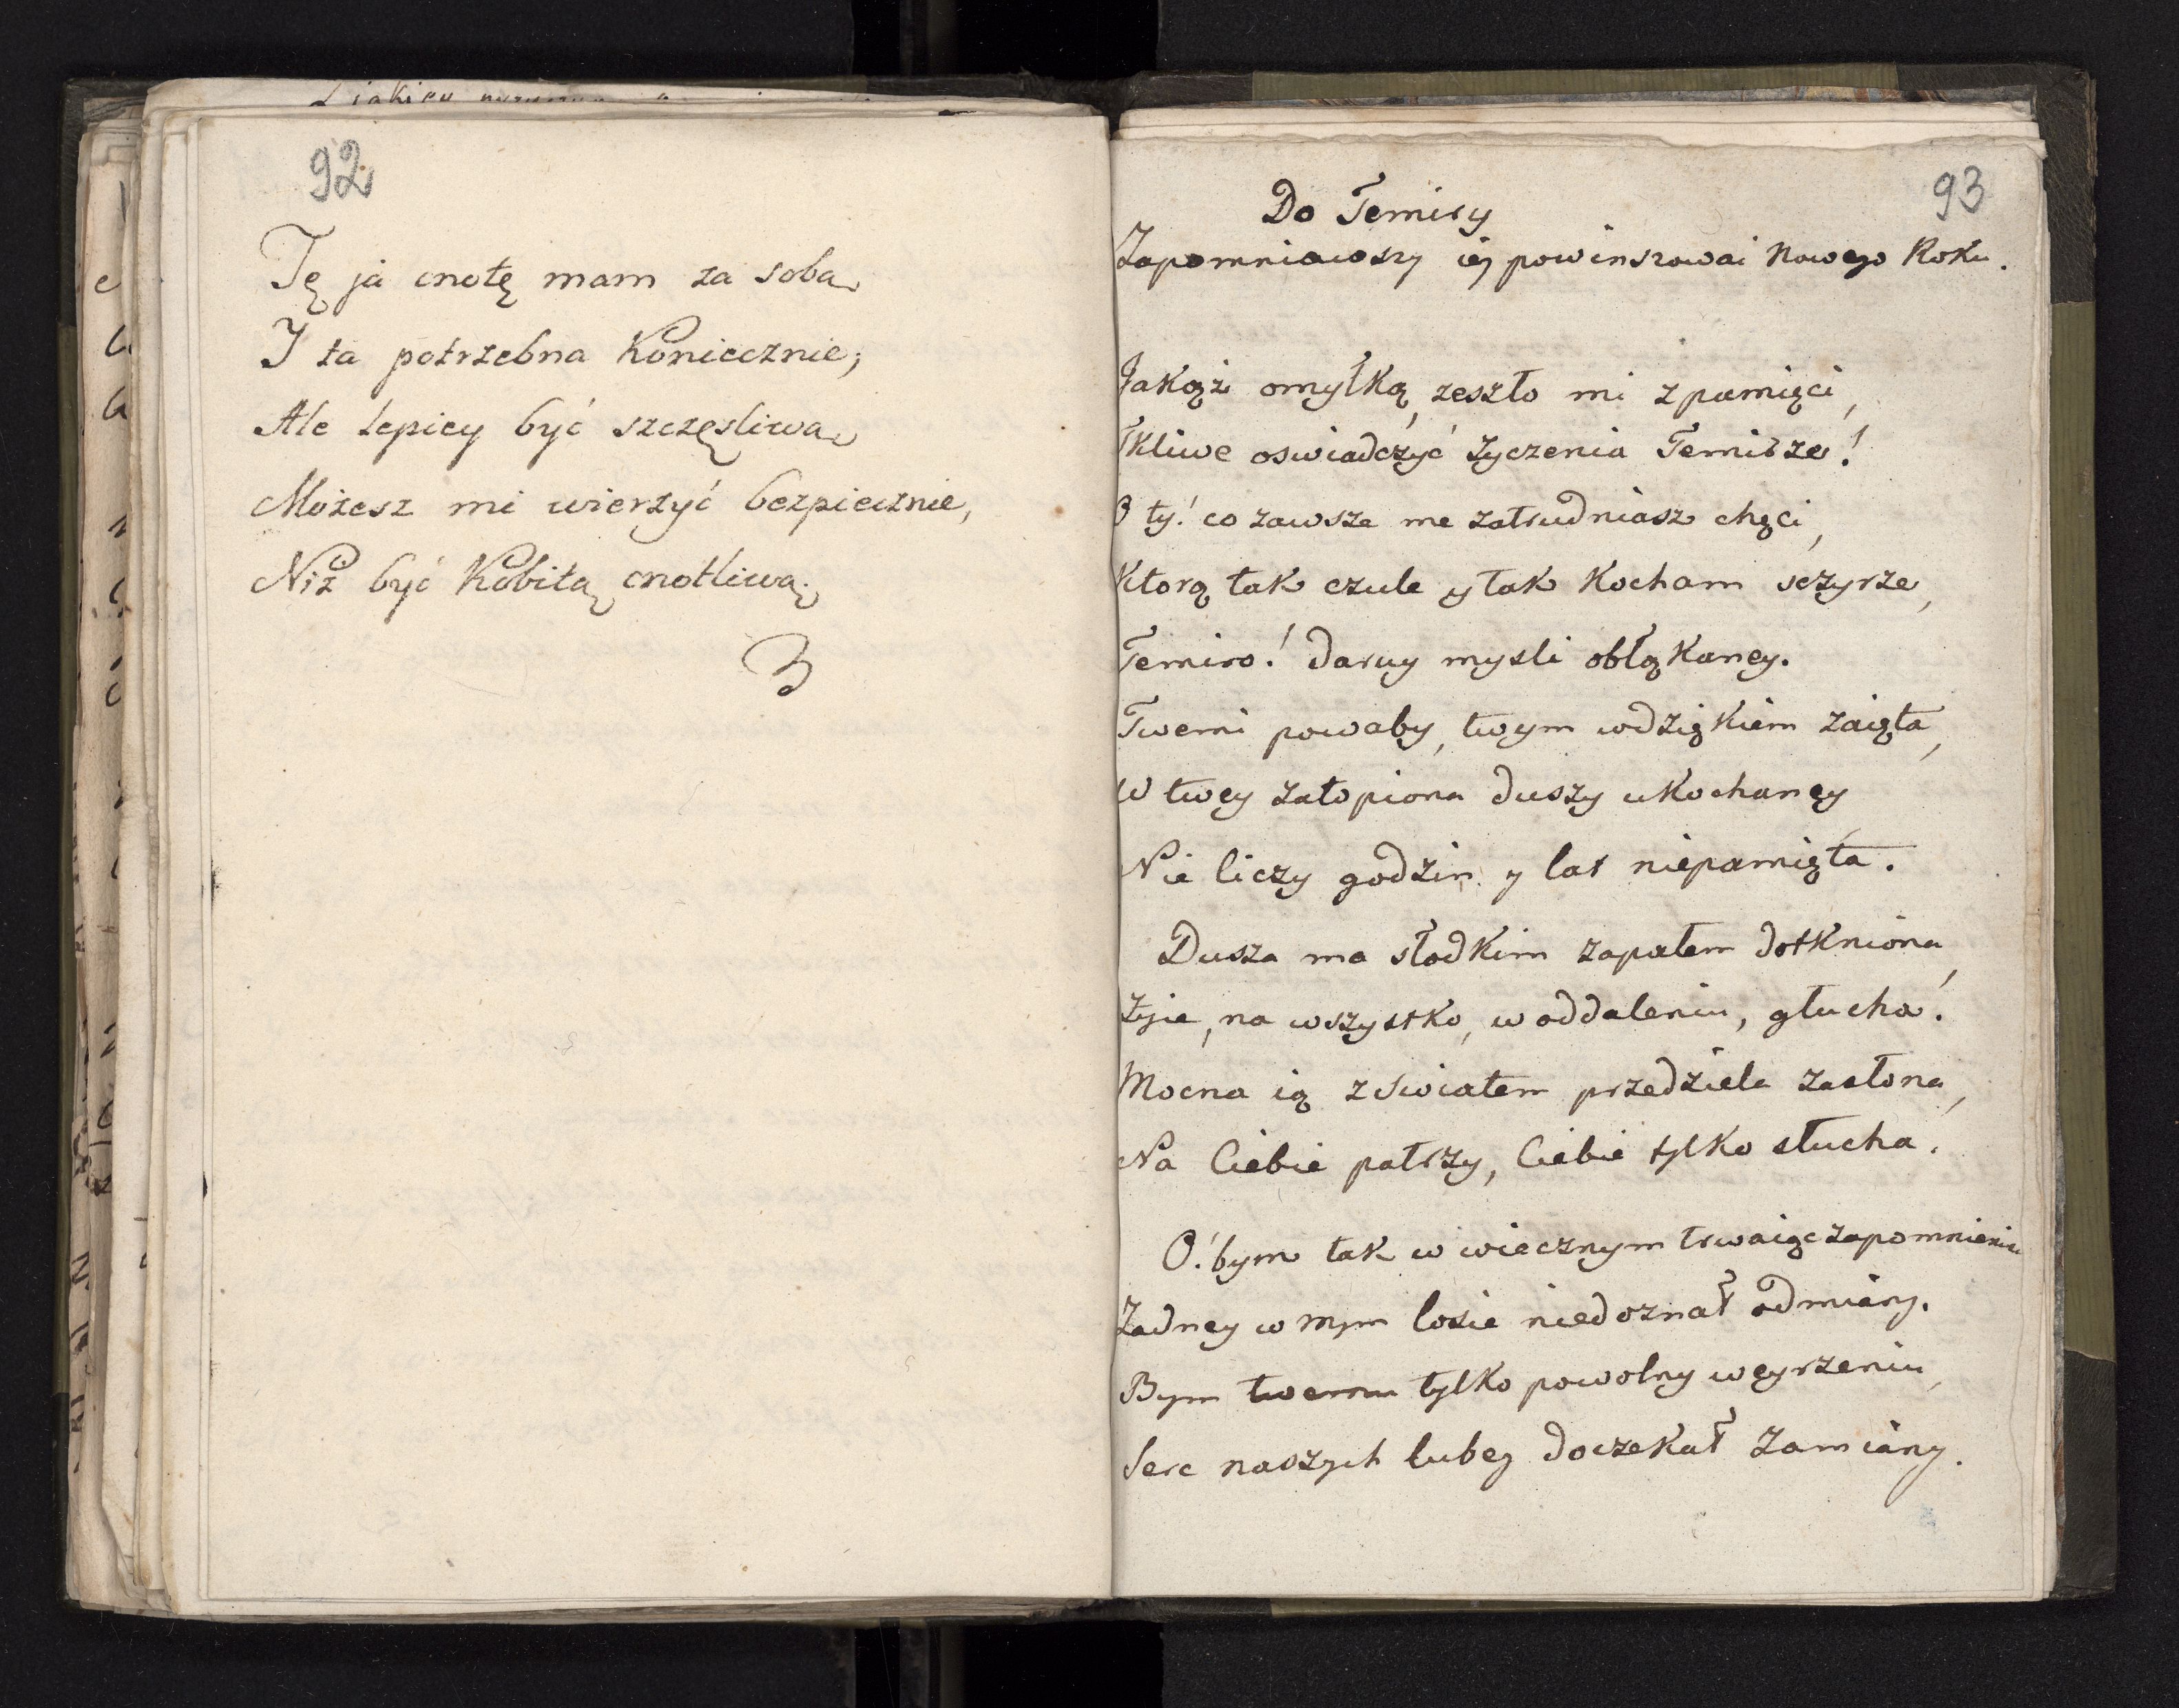 92
Tę ja cnotę mam za sobą
I ta potrzebna Koniecznie;
Ale lepiey być szczęsliwą
Możesz mi wierzyć bezpiecznie,
Niż być Kobitą cnotliwą.
93
Do Temiry
Zapomniawszy iey powinszować Nowego Roku.
Jakąż omyłką zeszło mi z pamięci,
Tkliwe oswiadczyć życzenia Temirze!
O ty! co zawsze me zatrudniasz chęci,
Ktorą tak czule y tak Kocham sczyrze,
Temiro! daruy mysli obłąkaney.
Twemi powaby, twym wdziękiem zaięta,
W twey zatopiona duszy ukochaney
Nie liczy godzin y lat niepamięta.
Dusza ma słodkim zapałem dotkniona,
Żyie, na wszystko, w oddaleniu, głucha!
Mocna ią z swiatem przedziela zasłona,
Na Ciebie patrzy, Ciebie tylko słucha.
O! bym tak w wiecznym trwaiąc zapomnieniu
Żadney w mym losie niedoznał odmiany.
Bym twemu tylko powolny weyrzeniu,
Serc naszych lubey doczekał zamiany.